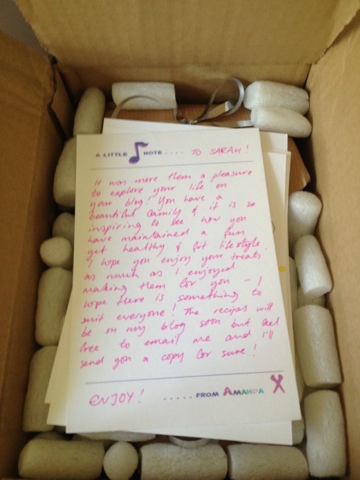 A LITTLE NOTE ..... TO SARAH!
It was more them a pleasure
to explore your life on
your blog! You have a
beautiful family & it is so
inspiring to see how you
have maintained a fun
yet healthy & fit lifestyle.
I hope you enjoy your treats
as much as I enjoyed
making them for you - I
hope there is something to
suit everyone! The recipes will
be on my blog soon but feel
free to email me and I'll
send you a copy for sure!
ENJOY! ..... FROM AMANDA X